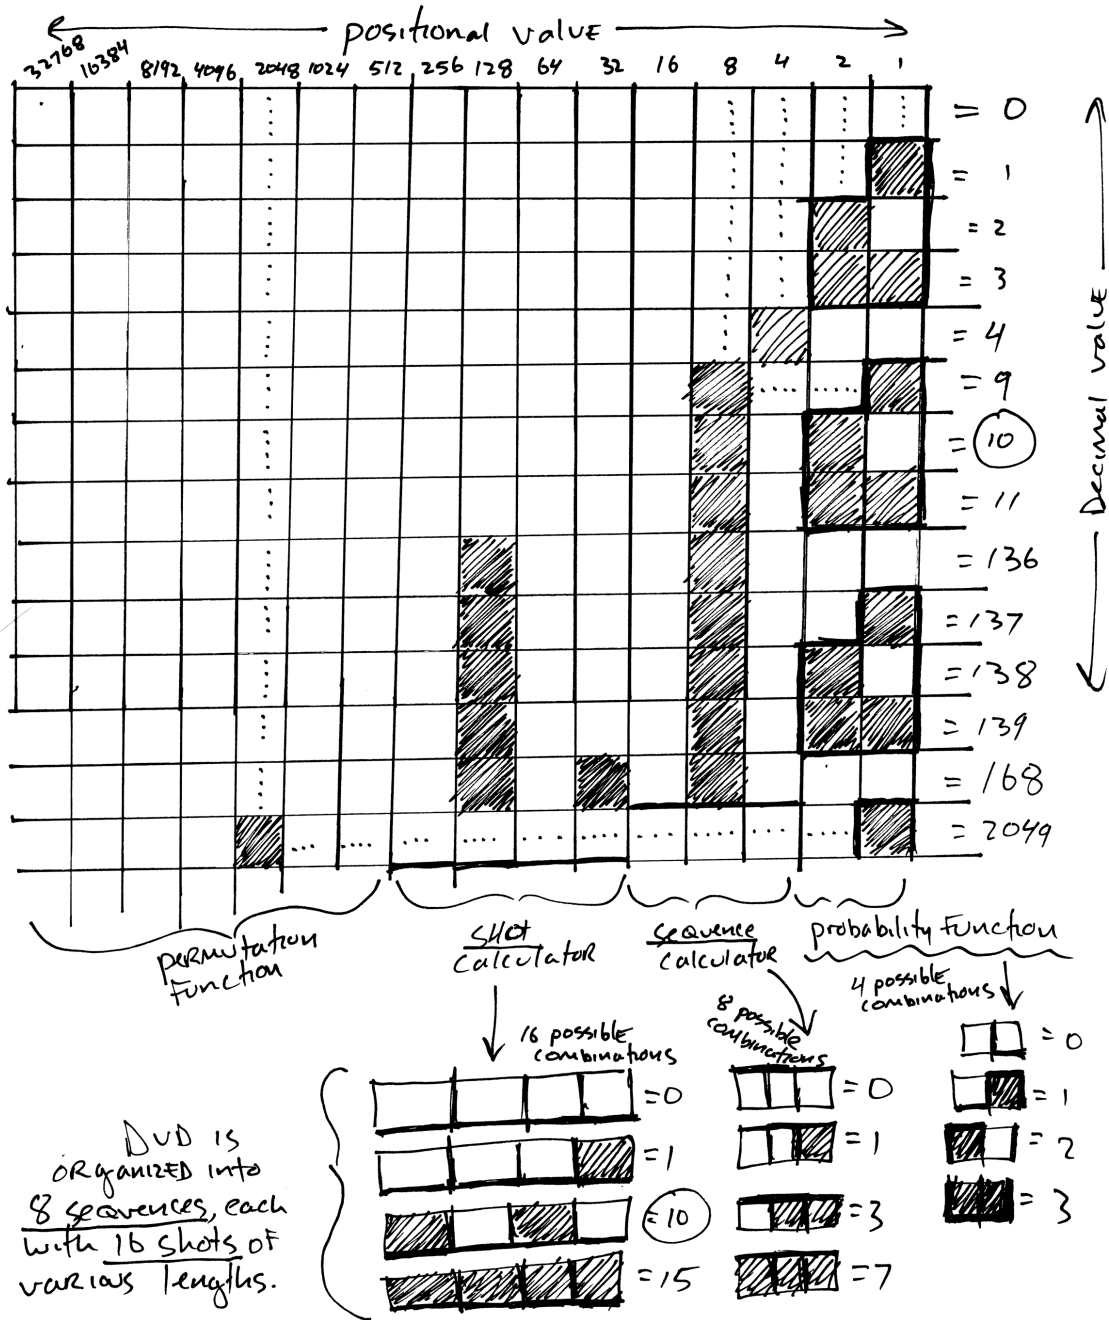 positional value
32768 16384 8192 4096 2048 1024 512 256 128 64 32 16 8 4 2 1
= 0
= 1
= 2
= 3
= 4
= 9
= 10
= 11
= 136
= 137
= 138
= 139
= 168
= 2049
Decimal value
permutation
function
SHOT
calculator
sequence
calculator
probability function
16 possible
combinations
8 possible
combinations
4 possible
combinations
= 0
= 1
= 10
= 15
= 0
= 1
= 3
= 7
= 0
= 1
= 2
= 3
DVD is
organized into
8 sequences, each
with 16 shots of
various lengths.